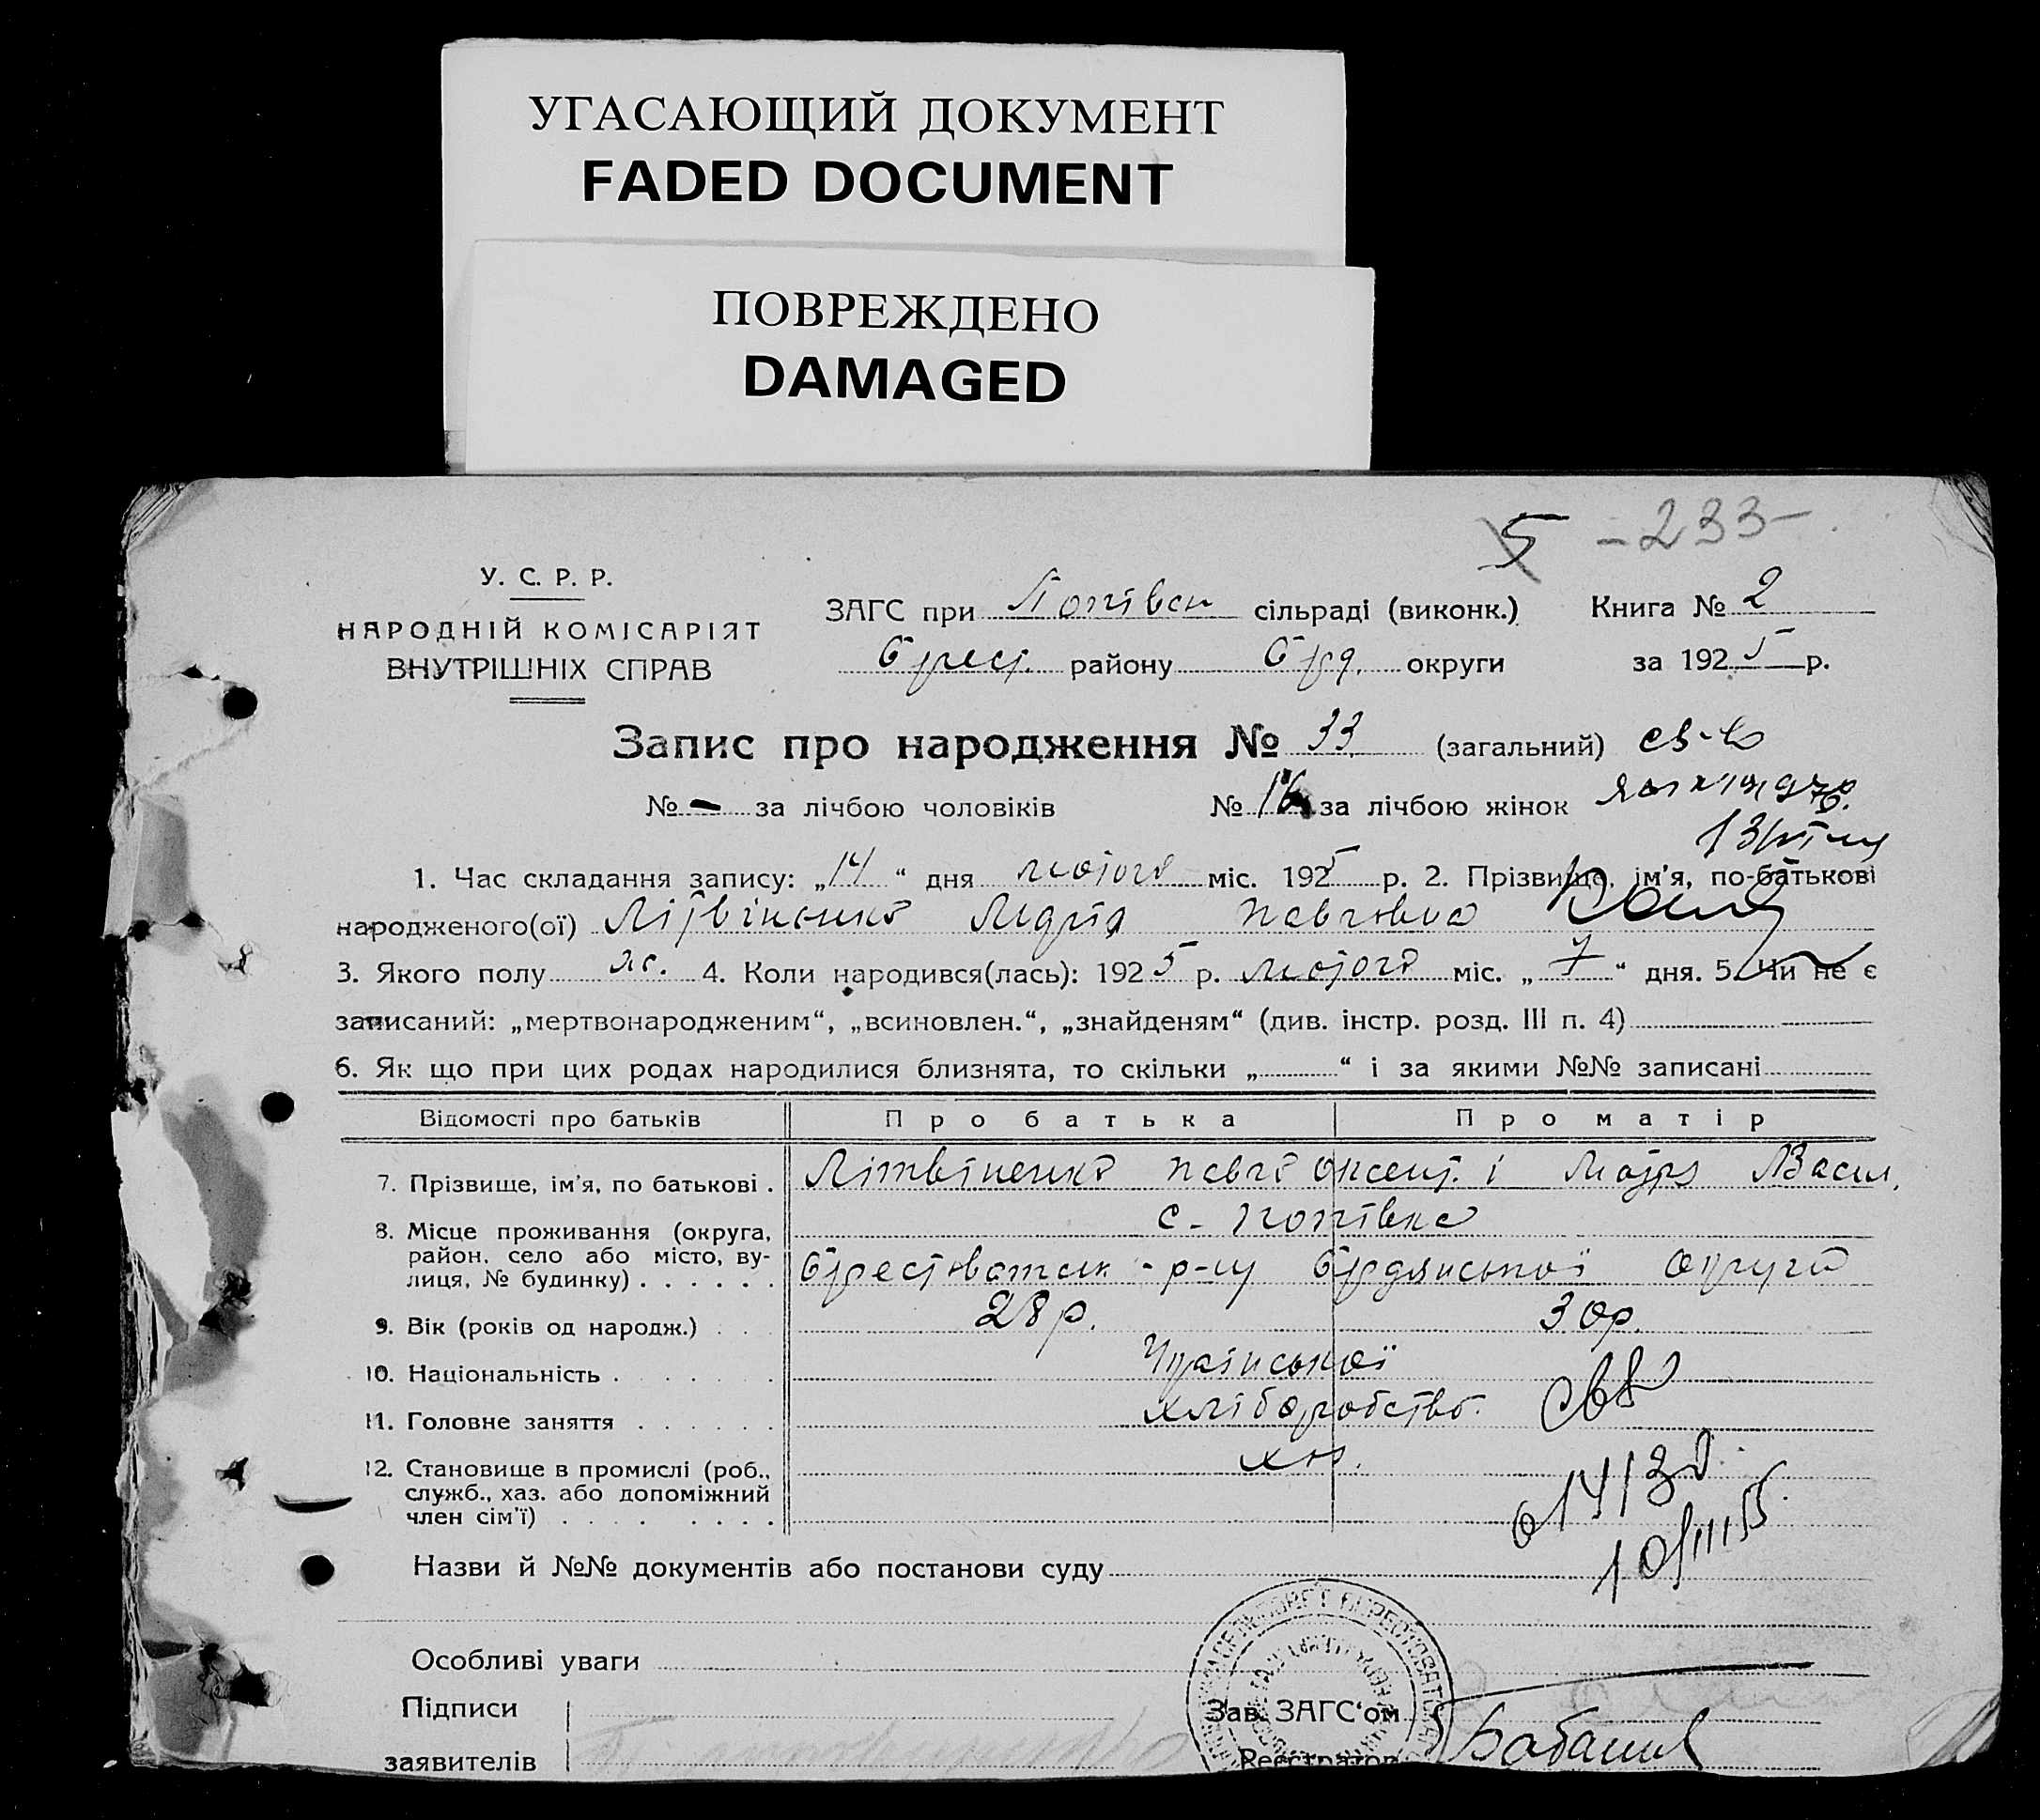 УГАСАЮЩИЙ ДОКУМЕНТ
FADED DOCUMENT
ПОВРЕЖДЕНО
DAMAGED
5 - 233 -
У. С. Р. Р.
НАРОДНІЙ КОМІСАРІЯТ
ВНУТРІШНІХ СПРАВ
ЗАГС при Попівськ сільраді (виконк.) Книга № 2
району округи за 1925 р.
Запис про народження № 33 (загальний) св-во
№ - за лічбою чоловіків № 16 за лічбою жінок
1. Час складання запису: „14“ дня лютого міс. 1925 р. 2. Прізвище, ім’я, по-батькові
народженого(ої) Літвіненко Марія Павловна
3. Якого полу ж. 4. Коли народився(лась): 1925 р. лютого міс. „7“ дня. 5. Чи не є
записаний: „мертвонародженим“, „всиновлен.“, „знайденям“ (див. інстр. розд. III п. 4)
6. Як що при цих родах народилися близнята, то скільки „ “ і за якими №№ записані
Відомості про батьків Про батька Про матір
7. Прізвище, ім’я, по батькові . Літвіненко Павло Оксент. і Васил.
8. Місце проживання (округа, район, село або місто, вулиця, № будинку) . . . . . . с. Попівка
р-ну Бердянської округи
9. Вік (років од народж.) . . . 28 р. 30 р.
10. Національність . . . . . . . Української
11. Головне заняття . . . . . . хліборобство. свв
12. Становище в промислі (роб., служб., хаз. або допоміжний член сім’ї) . . . . . . . . .
10/III
Назви й №№ документів або постанови суду
Особливі уваги
Підписи
заявителів
Зав. ЗАГС‘ом
Реєстратор